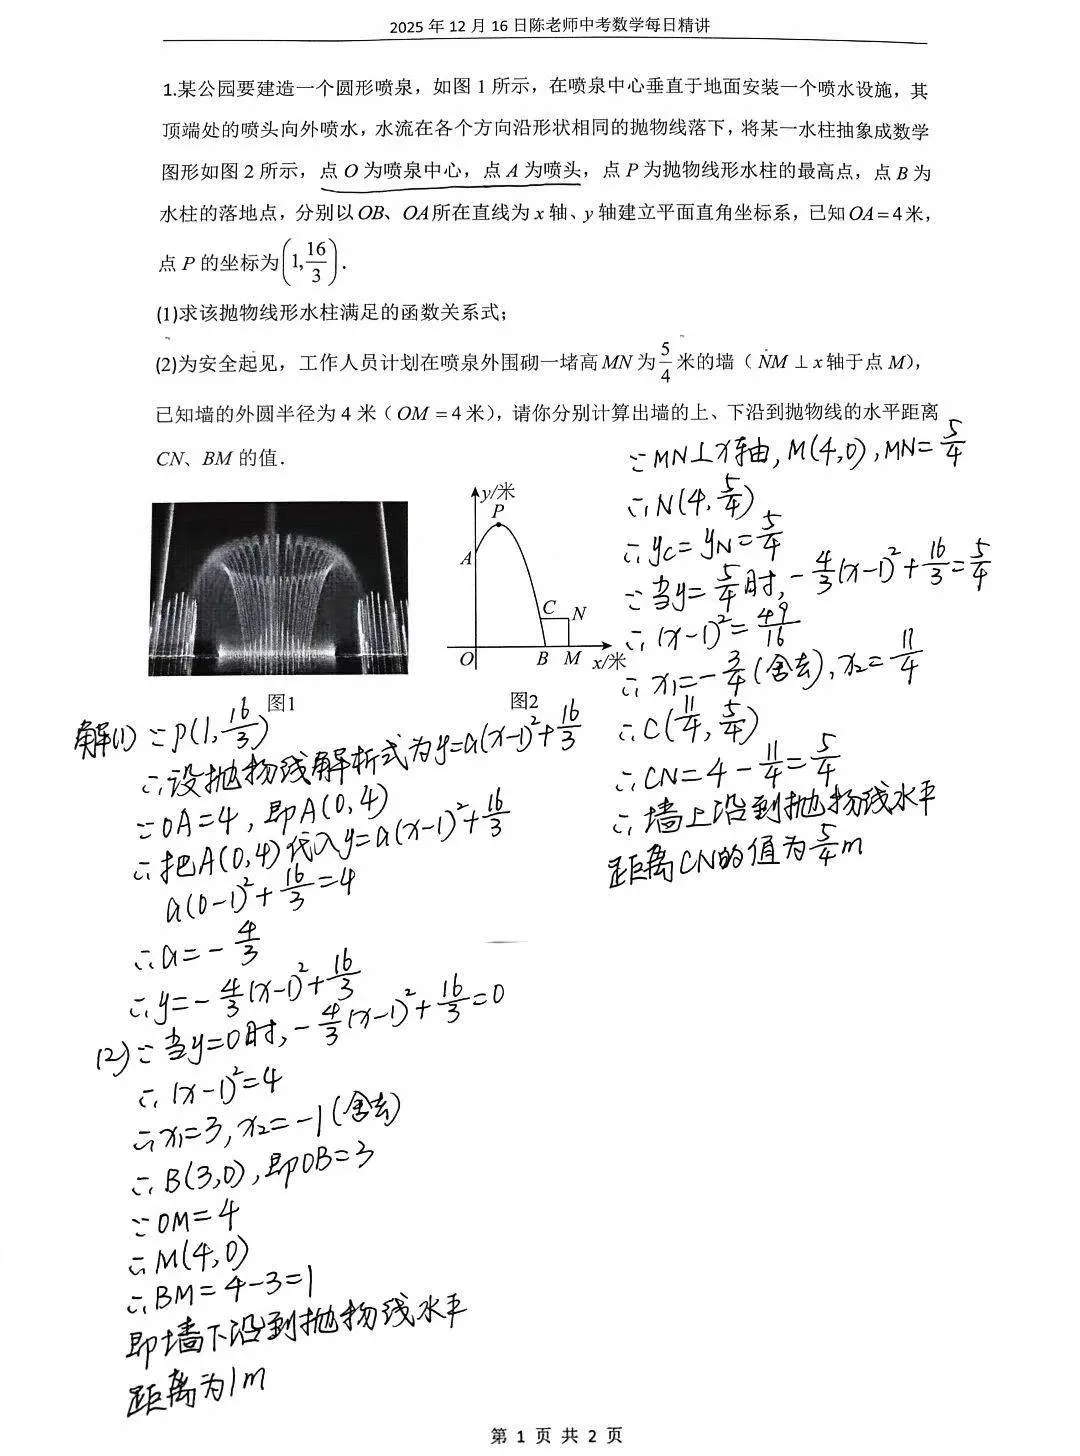 2025 年 12 月 16 日陈老师中考数学每日精讲
1.某公园要建造一个圆形喷泉，如图 1 所示，在喷泉中心垂直于地面安装一个喷水设施，其
顶端处的喷头向外喷水，水流在各个方向沿形状相同的抛物线落下，将某一水柱抽象成数学
图形如图 2 所示，点 O 为喷泉中心，点 A 为喷头，点 P 为抛物线形水柱的最高点，点 B 为
水柱的落地点，分别以 OB、OA 所在直线为 x 轴、y 轴建立平面直角坐标系，已知 OA = 4 米，
点 P 的坐标为(1, 16/3)．
(1)求该抛物线形水柱满足的函数关系式；
(2)为安全起见，工作人员计划在喷泉外围砌一堵高 MN 为 5/4 米的墙（ NM ⊥ x 轴于点 M），
已知墙的外圆半径为 4 米（OM = 4 米），请你分别计算出墙的上、下沿到抛物线的水平距离
CN、BM 的值．
y/米
P
A
C
N
O
B
M
x/米
图1
图2
解(1) ∵P(1, 16/3)
∴设抛物线解析式为y=a(x-1)²+16/3
∵OA=4，即A(0,4)
∴把A(0,4)代入y=a(x-1)²+16/3
a(0-1)²+16/3=4
∴a=-4/3
∴y=-4/3(x-1)²+16/3
(2)∵当y=0时，-4/3(x-1)²+16/3=0
∴(x-1)²=4
∴x₁=3，x₂=-1(舍去)
∴B(3,0)，即OB=3
∵OM=4
∴M(4,0)
∴BM=4-3=1
即墙下沿到抛物线水平
距离为1m
∵MN⊥x轴，M(4,0)，MN=5/4
∴N(4, 5/4)
∴yC=yN=5/4
∵当y=5/4时，-4/3(x-1)²+16/3=5/4
∴(x-1)²=49/16
∴x₁=-3/4(舍去)，x₂=11/4
∴C(11/4, 5/4)
∴CN=4-11/4=5/4
∴墙上沿到抛物线水平
距离CN的值为5/4m
第 1 页 共 2 页